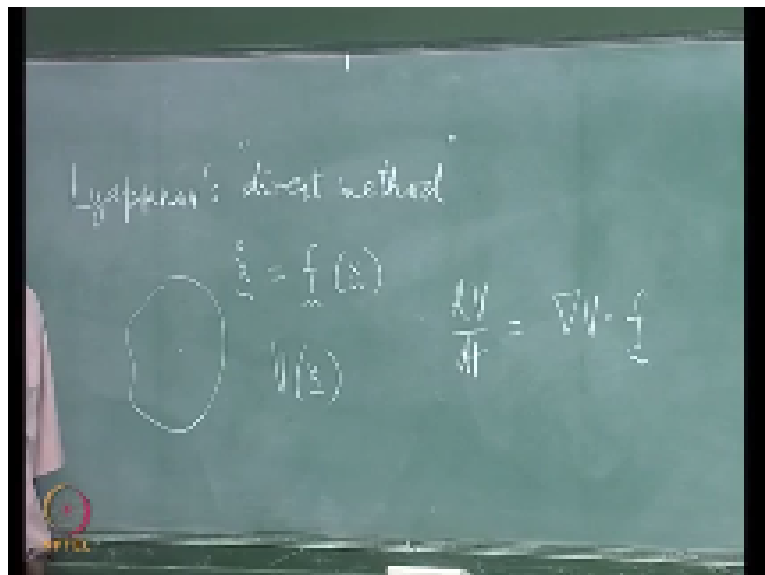 Lyapunov's "direct method"
ẋ = f(x)
V(x)
dV/dt = ∇V · f
NPTEL